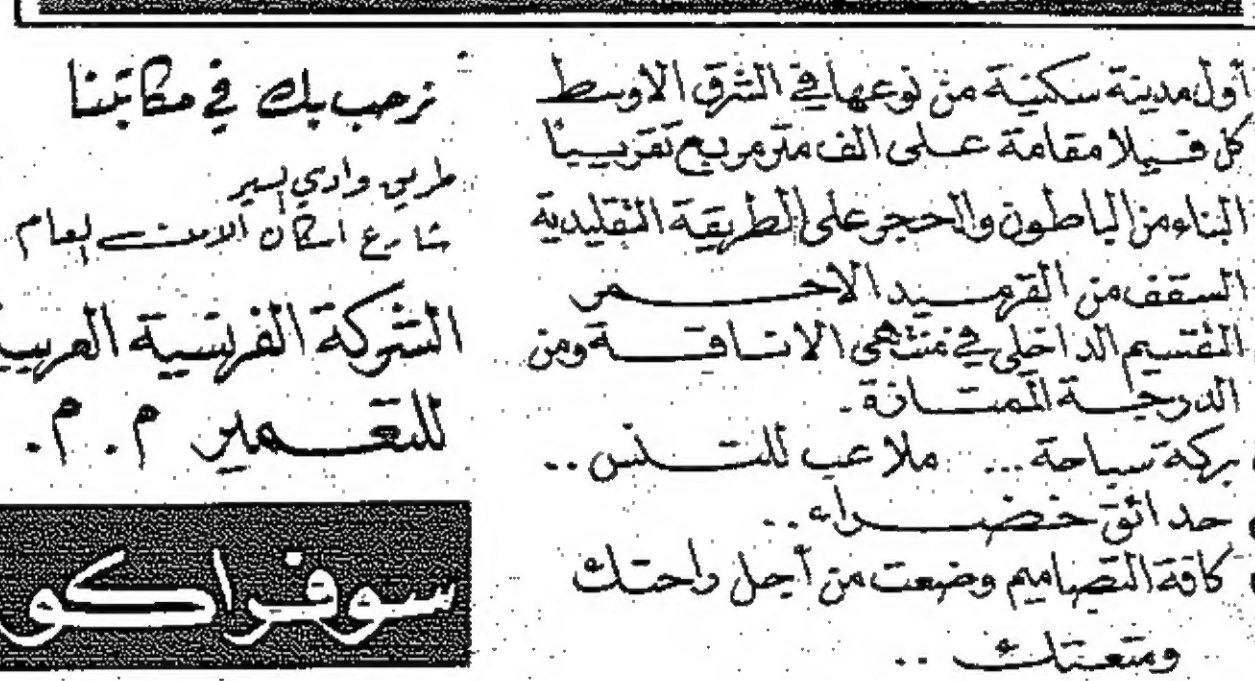 أول مدينة سكنية من نوعها في الشرق الاوسط
كل فيلا مقامة على الف متر مربع تقريباً
البناء من الباطون والحجر على الطريقة التقليدية
السقف من القرميد الاحمر
التقسيم الداخلي في منتهى الاناقة ومن
الدرجة الممتازة .
بركة سباحة ... ملاعب للتنس ..
حدائق خضراء ..
كافة التصاميم وضعت من أجل راحتك
ومتعتك ..
نرحب بك في مكاتبنا
طريق وادي السير
شارع اسكان الامن العام
الشركة الفرنسية العربية
للتعمير م . م .
سوفراكو